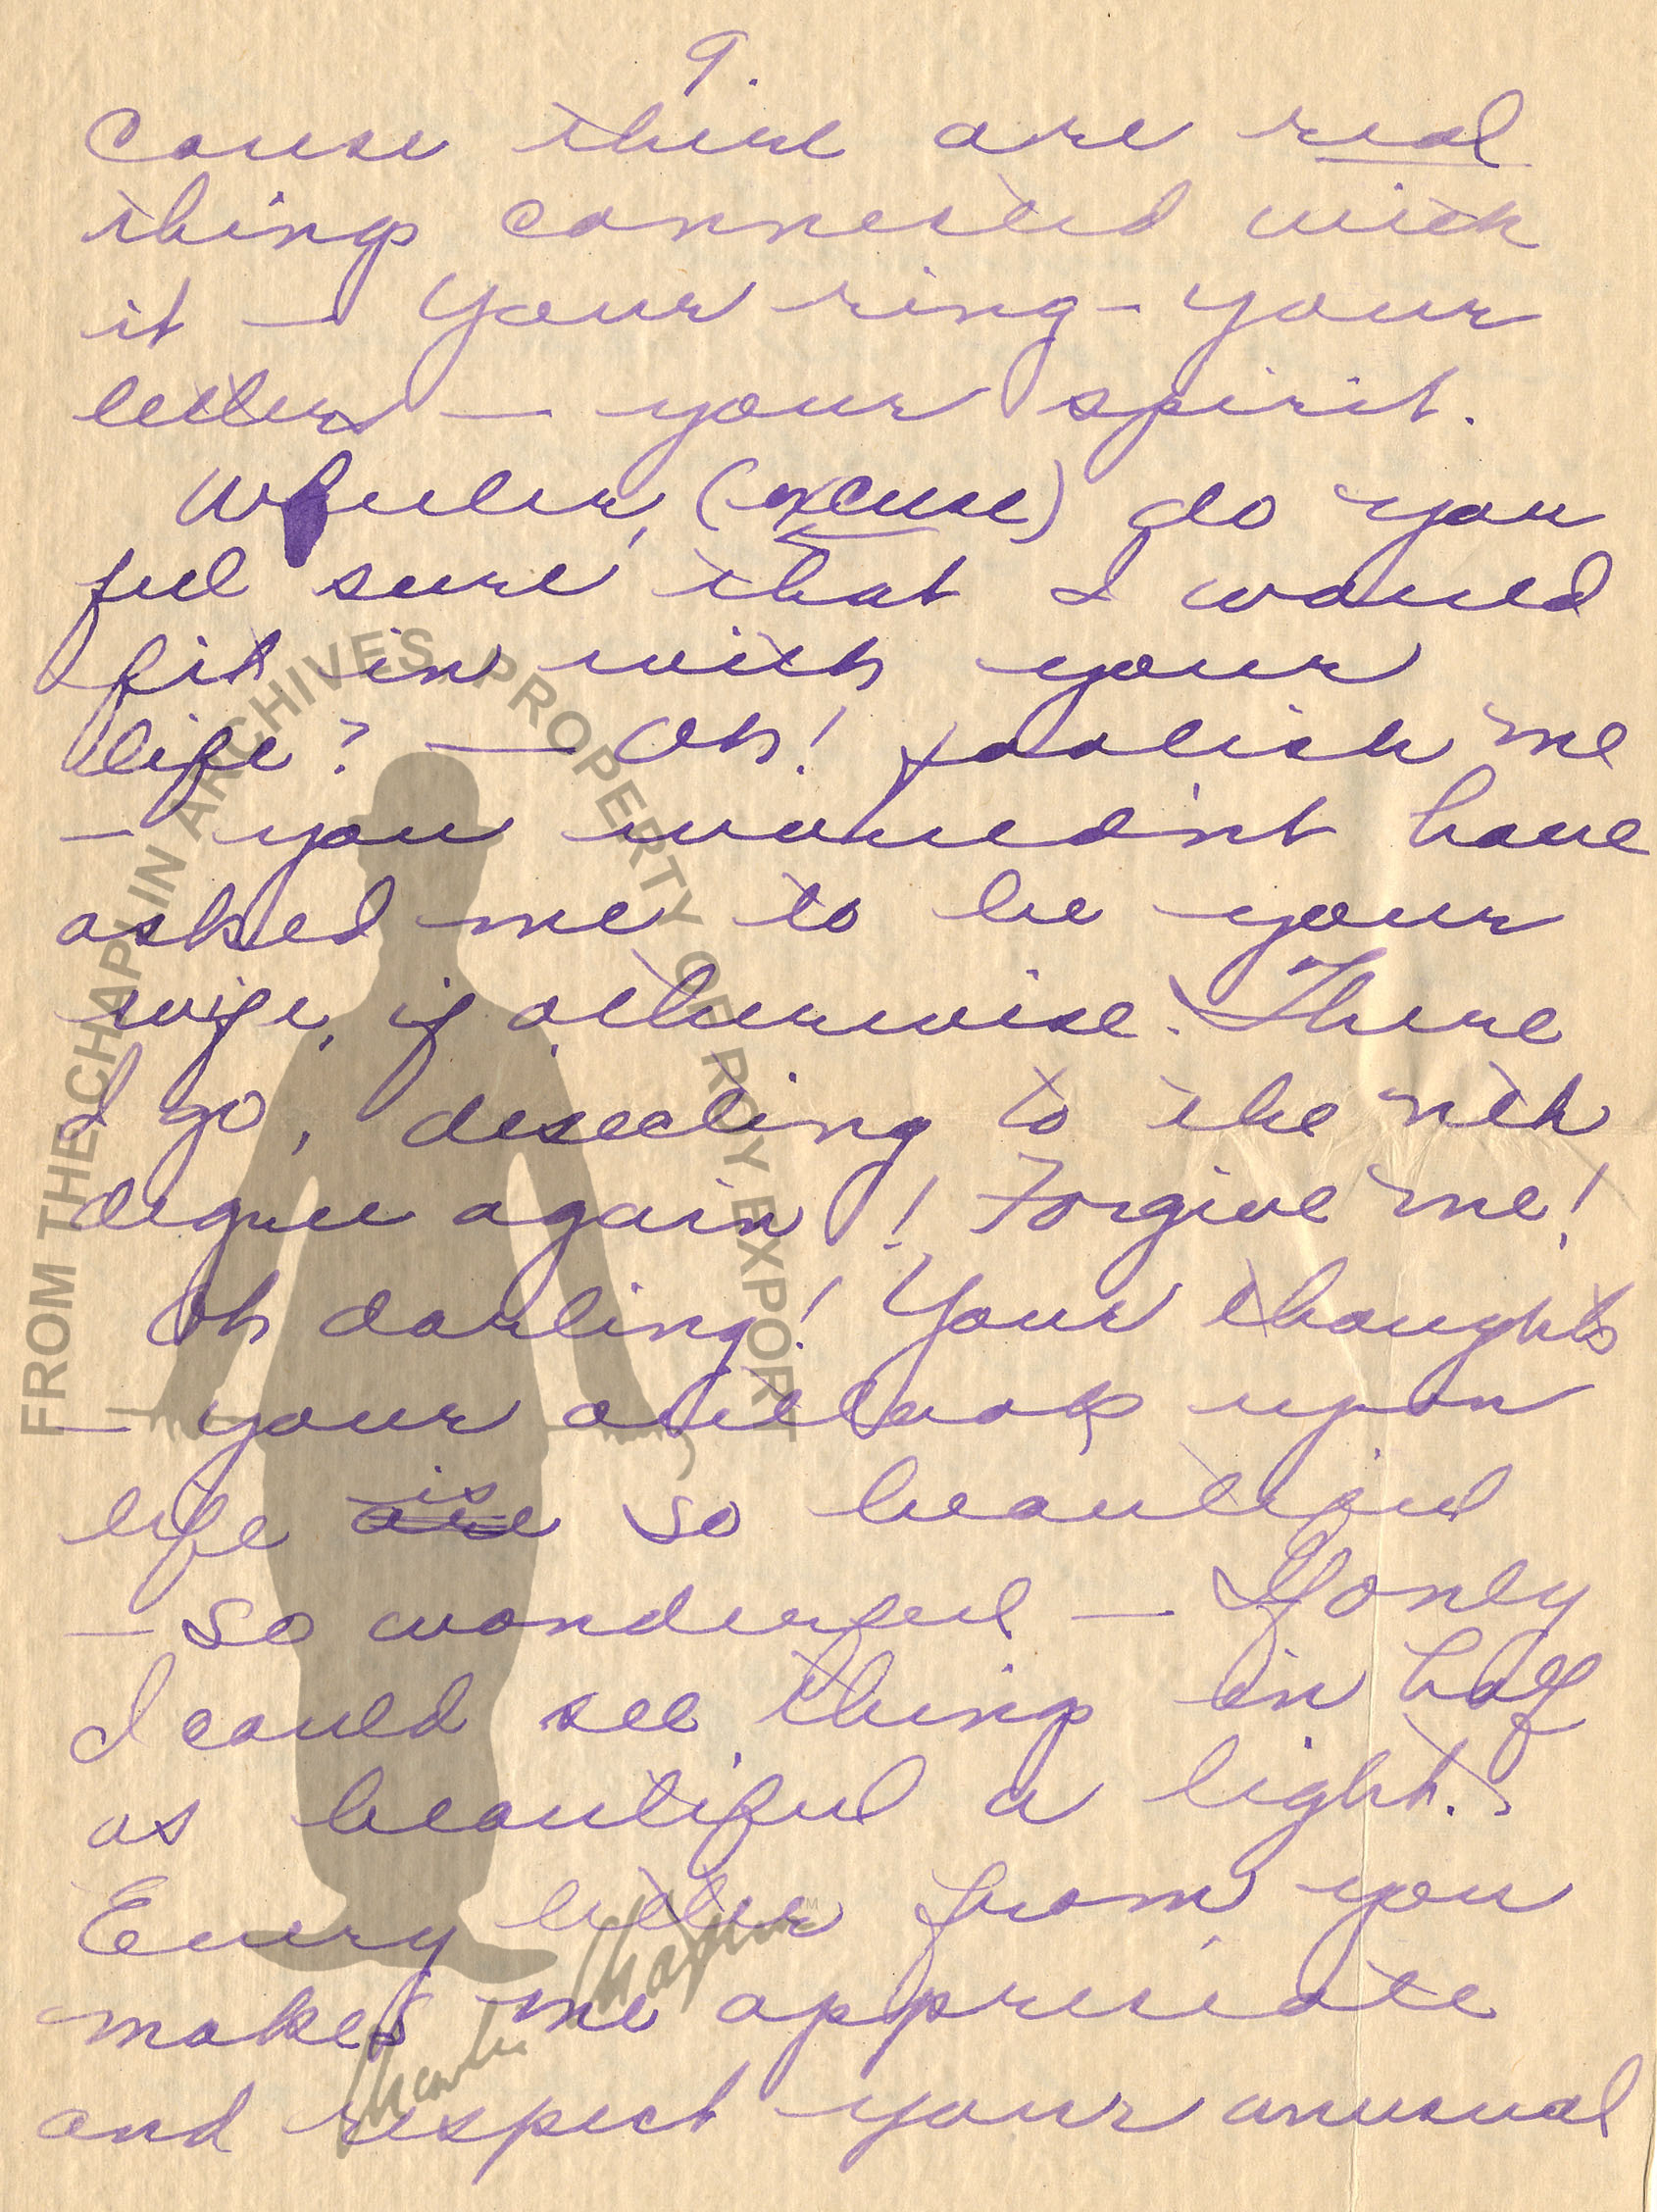 9.
cause there are real
things connected with
it — Your ring - Your
letters — your spirit.
Wheeler, (excuse) do you
feel sure that I would
fit in with your
life? — Oh! foolish me
— you wouldn't have
asked me to be your
wife, if otherwise. There
I go, dissecting to the nth
degree again! Forgive me!
Oh darling! Your thoughts
— your outlook upon
life are is so beautiful
— so wonderful — If only
I could see things in half
as beautiful a light.
Every letter from you
makes me appreciate
and respect your unusual
FROM THE CHAPLIN ARCHIVES, PROPERTY OF ROY EXPORT
Charlie Chaplin™